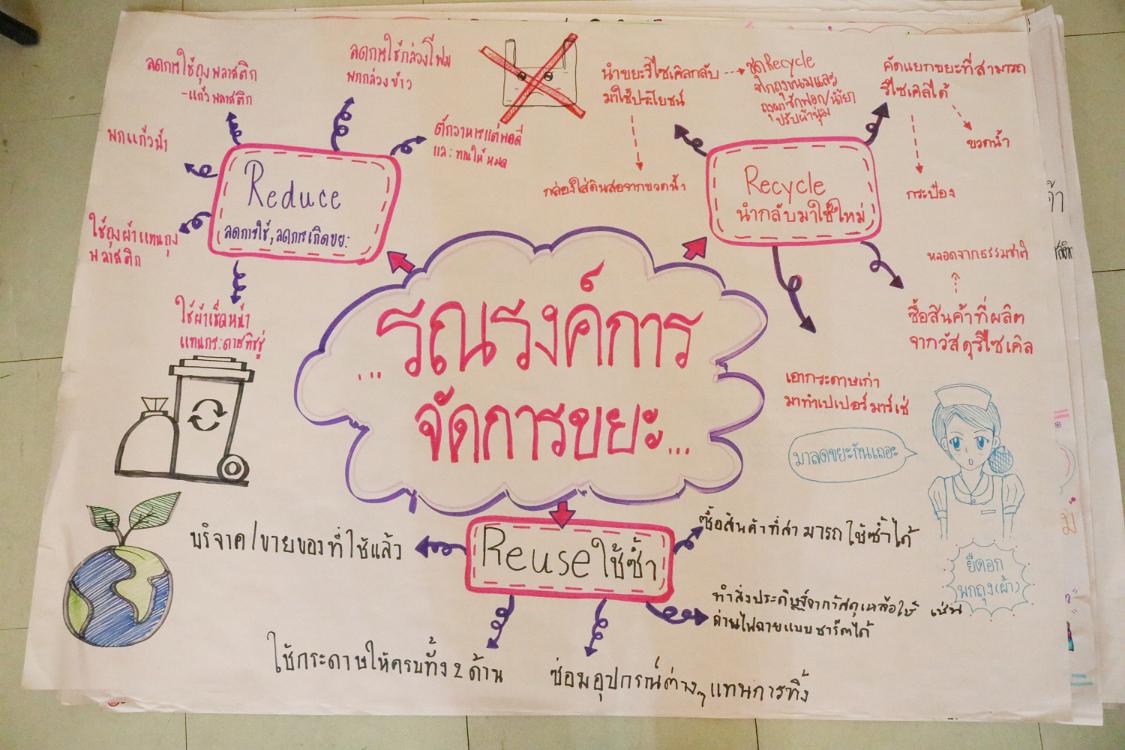 ลดการใช้ถุงพลาสติก
-แก้วพลาสติก
ลดการใช้กล่องโฟม
พกกล่องข้าว
พกแก้วน้ำ
ตักอาหารแต่พอดี
และทานให้หมด
Reduce
ลดการใช้,ลดการเกิดขยะ
ใช้ถุงผ้าแทนถุง
พลาสติก
ใช้ผ้าเช็ดหน้า
แทนกระดาษทิชชู่
นำขยะรีไซเคิลกลับ
มาใช้ประโยชน์
ชุดRecycle
จากถุงขนมและ
ถุงผงซักฟอก/น้ำยา
ปรับผ้านุ่ม
กล่องใส่ดินสอจากขวดน้ำ
คัดแยกขยะที่สามารถ
รีไซเคิลได้
ขวดน้ำ
กระป๋อง
Recycle
นำกลับมาใช้ใหม่
หลอดจากธรรมชาติ
ซื้อสินค้าที่ผลิต
จากวัสดุรีไซเคิล
เอากระดาษเก่า
มาทำเปเปอร์มาร์เช่
...รณรงค์การ
จัดการขยะ...
มาลดขยะกันเถอะ
ยืดอก
พกถุง(ผ้า)
Reuseใช้ซ้ำ
บริจาค/ขายของที่ใช้แล้ว
ซื้อสินค้าที่สามารถใช้ซ้ำได้
ทำสิ่งประดิษฐ์จากวัสดุเหลือใช้ เช่น
ถ่านไฟฉายแบบชาร์ตได้
ใช้กระดาษให้ครบทั้ง 2 ด้าน
ซ่อมอุปกรณ์ต่างๆแทนการทิ้ง